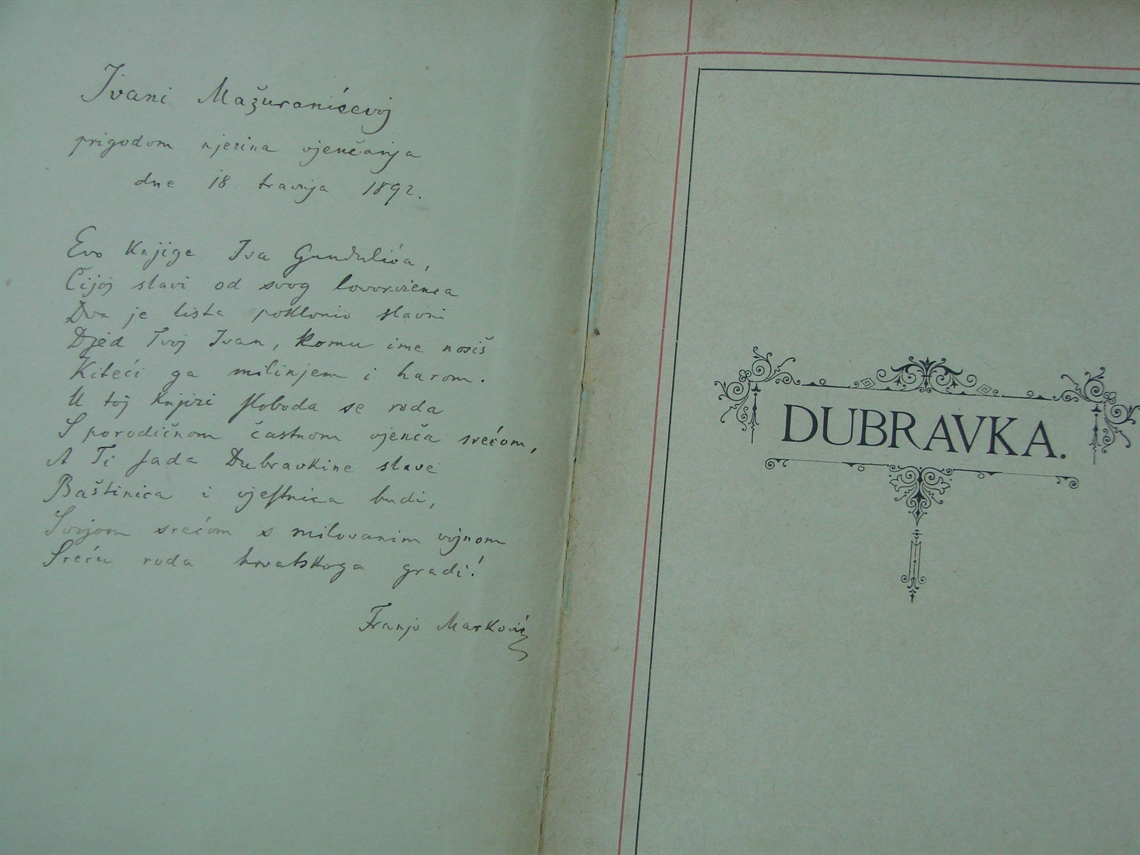 Ivani Mažuranićevoj
prigodom njezina vjenčanja
dne 18 travnja 1892.
Evo knjige Iva Gundulića,
Čijoj slavi od svog lovorvienca
Dva je lista poklonio slavni
Djed Tvoj Ivan, komu ime nosiš
Kiteći ga milinjem i harom.
U toj knjizi sloboda se roda
S porodičnom častnom vjenča srećom,
A Ti sada Dubravkine slave
Baštinica i vjestnica budi,
Svojom srećom s milovanim vojnom
Sreću roda hrvatskoga gradi!
Franjo Marković
DUBRAVKA.